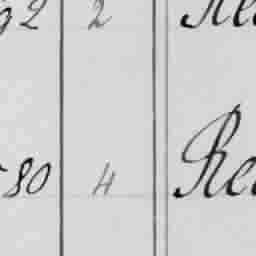 92 2 Re
80 4 Re